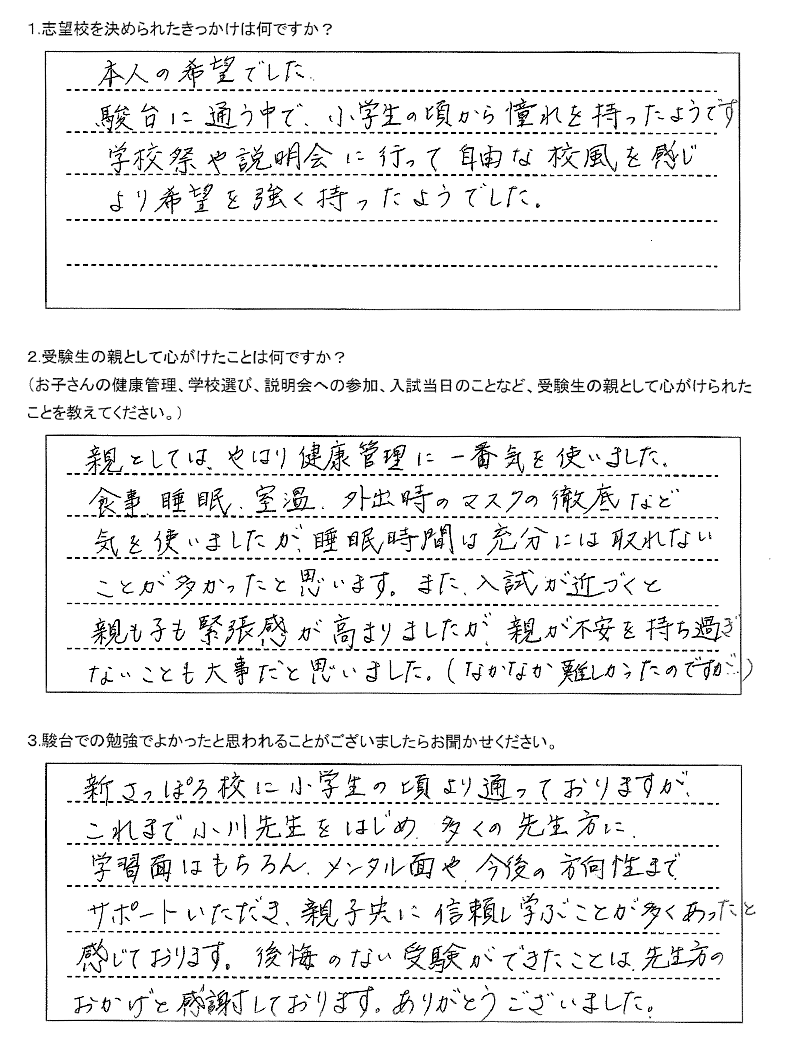 1.志望校を決められたきっかけは何ですか？
本人の希望でした。
駿台に通う中で、小学生の頃から憧れを持ったようです
学校祭や説明会に行って自由な校風を感じ
より希望を強く持ったようでした。
2.受験生の親として心がけたことは何ですか？
（お子さんの健康管理、学校選び、説明会への参加、入試当日のことなど、受験生の親として心がけられた
ことを教えてください。）
親としては、やはり健康管理に一番気を使いました。
食事、睡眠、室温、外出時のマスクの徹底など
気を使いましたが、睡眠時間は充分には取れない
ことが多かったと思います。また、入試が近づくと
親も子も緊張感が高まりましたが、親が不安を持ち過ぎ
ないことも大事だと思いました。（なかなか難しかったのですが…）
3.駿台での勉強でよかったと思われることがございましたらお聞かせください。
新さっぽろ校に小学生の頃より通っておりますが、
これまで小川先生をはじめ、多くの先生方に、
学習面はもちろん、メンタル面や、今後の方向性まで
サポートいただき、親子共に信頼し学ぶことが多くあったと
感じております。後悔のない受験ができたことは、先生方の
おかげと感謝しております。ありがとうございました。